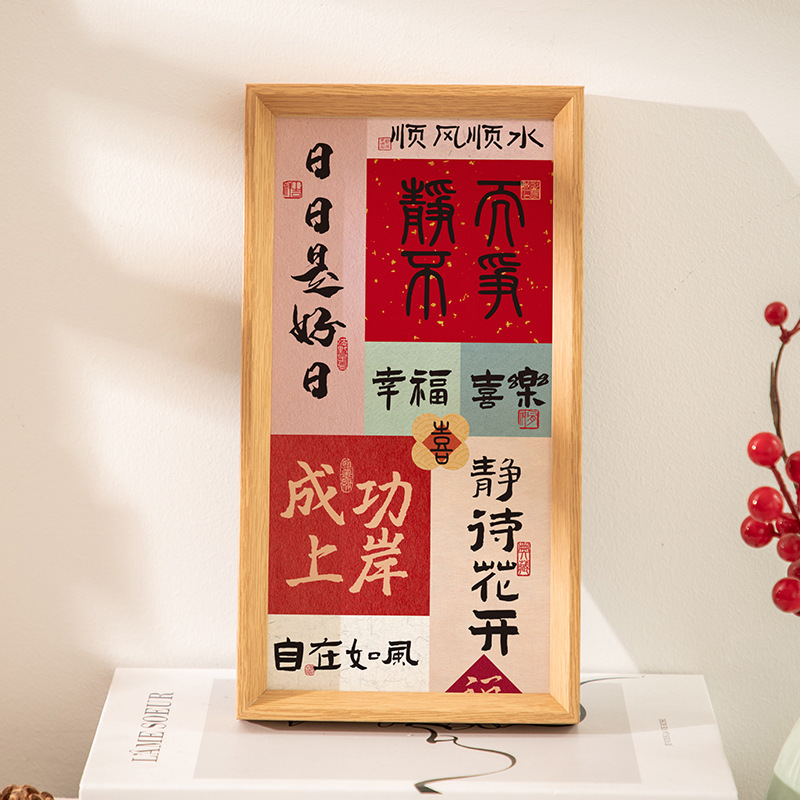 顺风顺水
日日是好日
静不
而争
幸福
喜樂
喜
成功
上岸
静待花开
自在如風
L'ÂME SOEUR